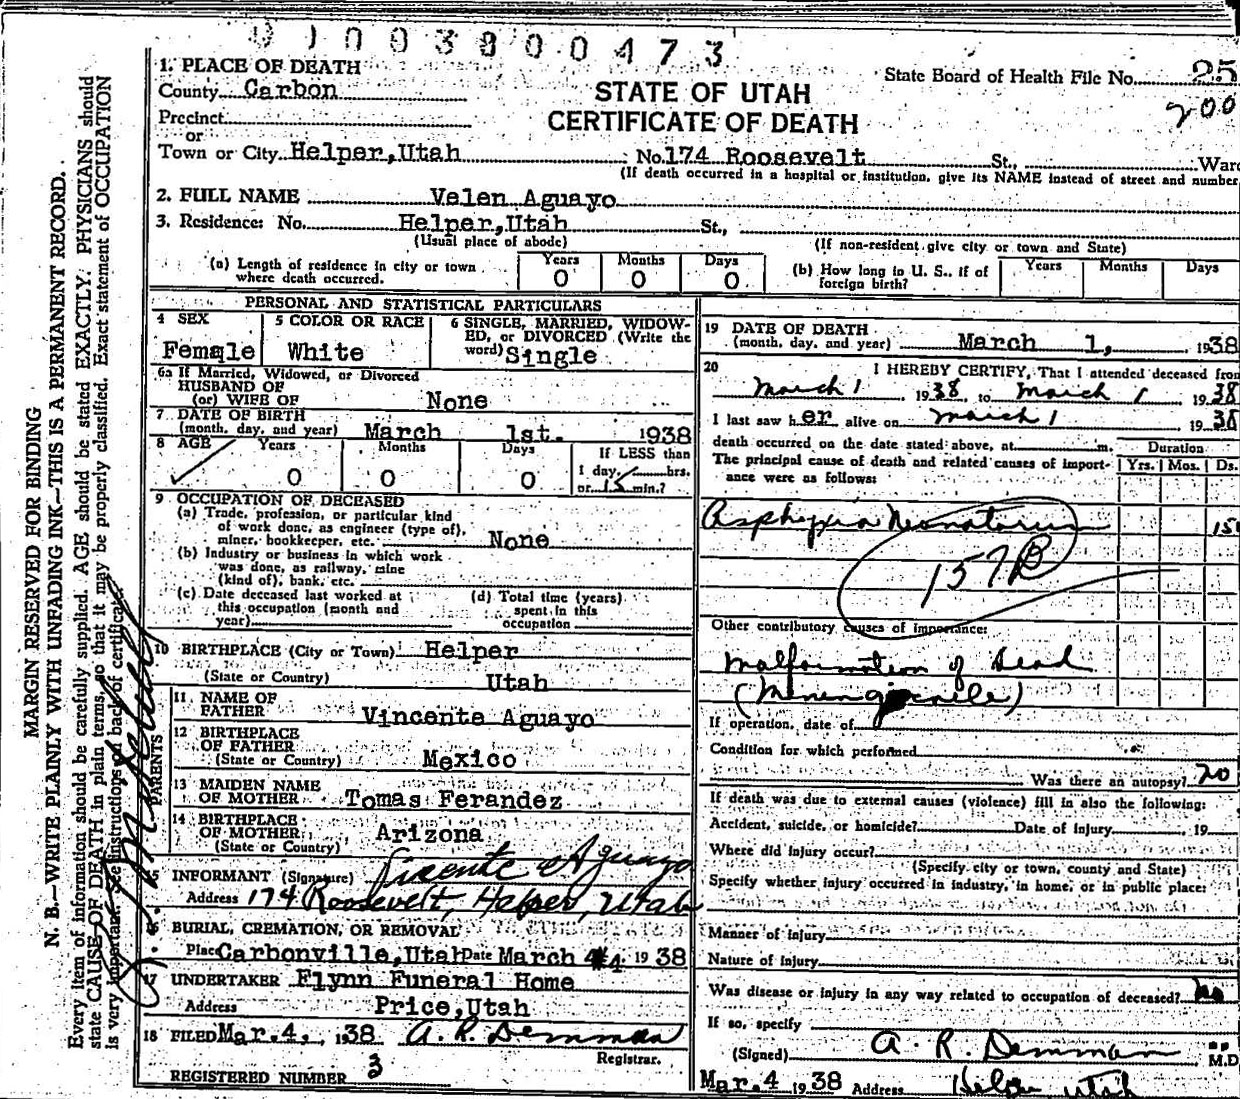 0 1 0 0 3 8 0 0 4 7 3
1. PLACE OF DEATH
County Carbon
STATE OF UTAH
CERTIFICATE OF DEATH
State Board of Health File No. 25
200
Precinct
or
Town or City Helper,Utah No. 174 Roosevelt St., Ward
(If death occurred in a hospital or institution, give its NAME instead of street and number
2. FULL NAME Velen Aguayo
3. Residence: No. Helper,Utah St.,
(Usual place of abode) (If non-resident give city or town and State)
(a) Length of residence in city or town where death occurred. Years 0 Months 0 Days 0
(b) How long in U. S., if of foreign birth? Years Months Days
PERSONAL AND STATISTICAL PARTICULARS
4 SEX Female
5 COLOR OR RACE White
6 SINGLE, MARRIED, WIDOW-
ED, or DIVORCED (Write the
word) Single
6a If Married, Widowed, or Divorced
HUSBAND OF
(or) WIFE OF None
7 DATE OF BIRTH
(month, day, and year) March 1st. 1938
8 AGE Years 0 Months 0 Days 0
If LESS than
1 day, hrs.
or 15 min.?
9 OCCUPATION OF DECEASED
(a) Trade, profession, or particular kind
of work done, as engineer (type of),
miner, bookkeeper, etc. None
(b) Industry or business in which work
was done, as railway, mine
(kind of), bank, etc.
(c) Date deceased last worked at
this occupation (month and
year)
(d) Total time (years)
spent in this
occupation
10 BIRTHPLACE (City or Town) Helper
(State or Country) Utah
PARENTS
11. NAME OF
FATHER Vincente Aguayo
12 BIRTHPLACE
OF FATHER
(State or Country) Mexico
13 MAIDEN NAME
OF MOTHER Tomas Ferandez
14 BIRTHPLACE
OF MOTHER
(State or Country) Arizona
15 INFORMANT (Signature) Vicente Aguayo
Address 174 Roosevelt, Helper, Utah
16 BURIAL, CREMATION, OR REMOVAL
Place Carbonville,Utah Date March 4 1938
17 UNDERTAKER Flynn Funeral Home
Address Price,Utah
18 FILED Mar.4, 1938 A. R. Demman
Registrar.
REGISTERED NUMBER 3
19 DATE OF DEATH
(month, day, and year) March 1, 1938
20 I HEREBY CERTIFY, That I attended deceased from
March 1, 1938, to March 1 1938
I last saw her alive on March 1 1938
death occurred on the date stated above, at m.
The principal cause of death and related causes of import-
ance were as follows:
Duration
Yrs. Mos. Ds.
Asphyxia Neonatorum 15
157B
Other contributory causes of importance:
Malformation of Head
(Meningocele)
If operation, date of
Condition for which performed
Was there an autopsy? no
If death was due to external causes (violence) fill in also the following:
Accident, suicide, or homicide? Date of injury 19
Where did injury occur?
(Specify city or town, county and State)
Specify whether injury occurred in industry, in home, or in public place:
Manner of injury
Nature of injury
Was disease or injury in any way related to occupation of deceased? no
If so, specify
(Signed) A. R. Demman M.D
Mar.4 1938 Address Helper Utah
MARGIN RESERVED FOR BINDING
N. B.—WRITE PLAINLY WITH UNFADING INK—THIS IS A PERMANENT RECORD.
Every item of information should be carefully supplied. AGE should be stated EXACTLY. PHYSICIANS should
state CAUSE OF DEATH in plain terms, so that it may be properly classified. Exact statement of OCCUPATION
is very important. See instructions on back of certificate.